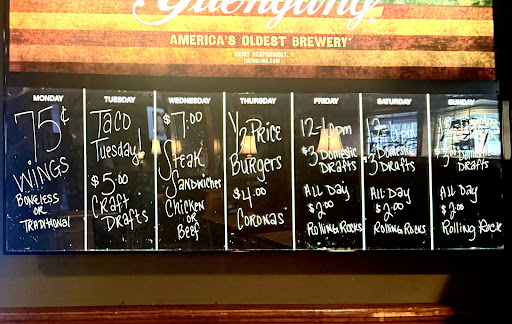 Yuengling
AMERICA'S OLDEST BREWERY
ENJOY RESPONSIBLY.
YUENGLING.COM
MONDAY
75¢
WINGS
BONELESS
OR
TRADITIONAL
TUESDAY
Taco
Tuesday!
$5.00
CRAFT
DRAFTS
WEDNESDAY
$7.00
STEAK
SANDWICHES
CHICKEN
OR
BEEF
THURSDAY
½ PRICE
BURGERS
$4.00
CORONAS
FRIDAY
12-1pm
$3 Domestic
DRAFTS
ALL DAY
$2.00
Rolling Rocks
SATURDAY
$3 Domestic
DRAFTS
All DAY
$2.00
Rolling Rocks
SUNDAY
DRAFTS
All DAY
$2.00
Rolling Rock